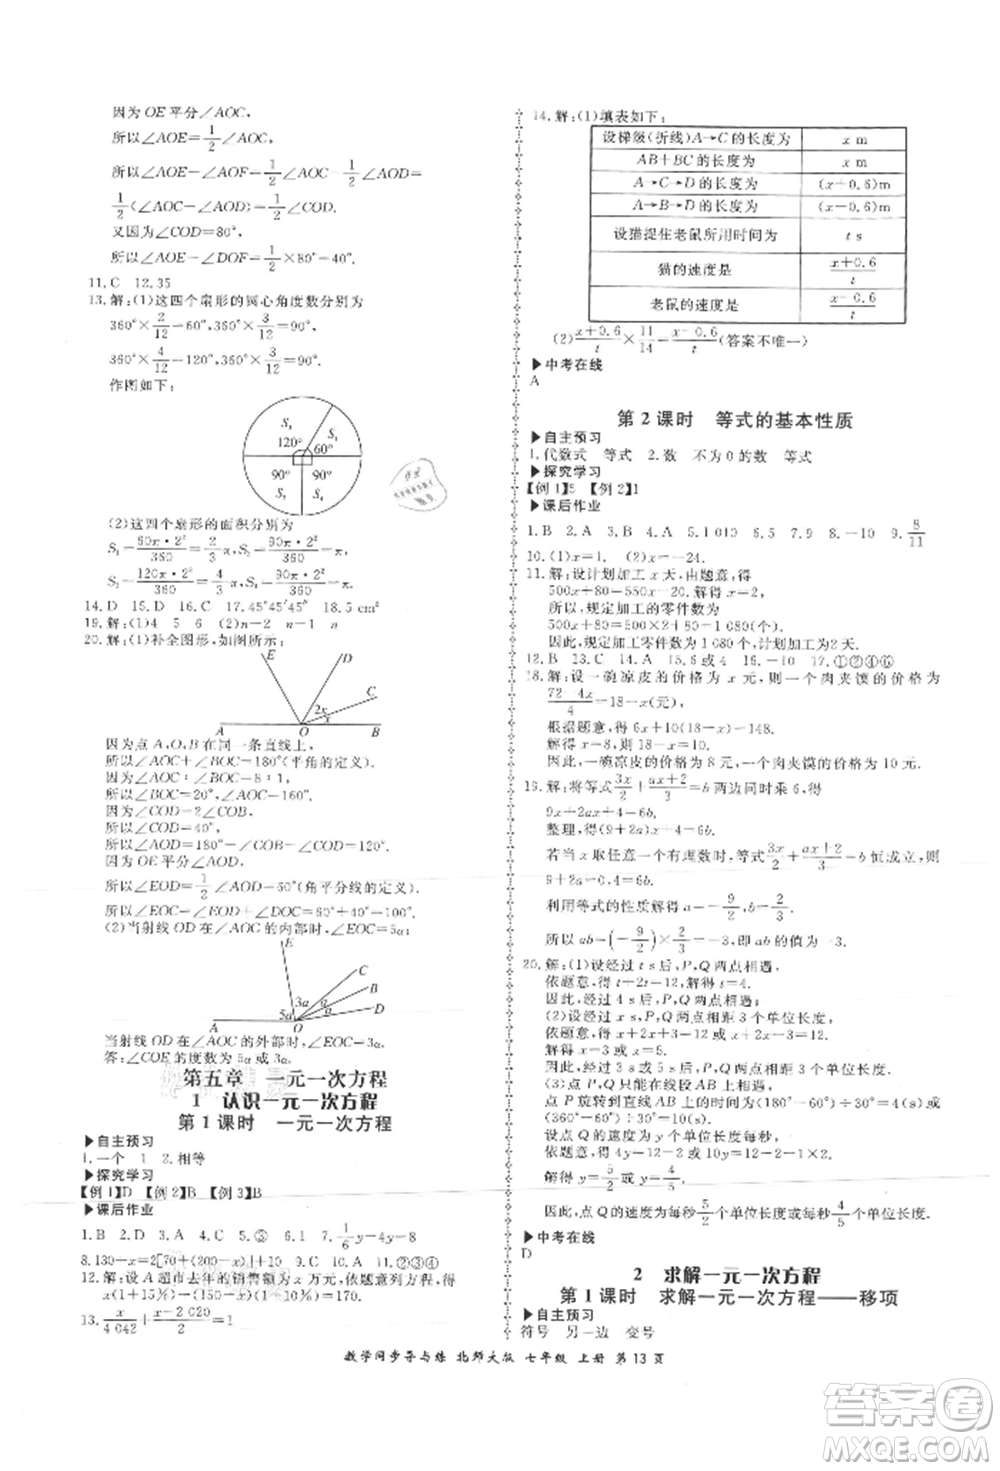 因为OE平分∠AOC,
所以∠AOE=1/2∠AOC.
所以∠AOE-∠AOF=1/2∠AOC-
1/2(∠AOC-∠AOD)=1/2∠COD.
又因为∠COD=80°,
所以∠AOE-∠DOF=1/2×80°=40°.
11.C 12.35
13.解:(1)这四个扇形的圆心角度数分别为
360°×2/12=60°,360°×3/12=90°,
360°×4/12=120°,360°×3/12=90°.
作图如下:
120°
60°
90°
90°
(2)这四个扇形的面积分别为
14.D 15.D 16.C 17.45°45′45″ 18.5 cm²
19.解:(1)4 5 6 (2)n-2 n-1 n
20.解:(1)补全图形,如图所示:
E D C
2x x
A O B
因为点A,O,B在同一条直线上,
所以∠AOC+∠BOC=180°(平角的定义).
因为∠AOC:∠BOC=8:1,
所以∠BOC=20°,∠AOC=160°.
因为∠COD=2∠COB,
所以∠COD=40°,
所以∠AOD=∠AOC-∠COD=120°.
因为OE平分∠AOD,
所以∠EOD=1/2∠AOD=60°(角平分线的定义).
所以∠EOC=∠EOD+∠COD=100°.
(2)当射线OD在∠AOC的内部时,∠EOC=5α;
E C D
5α 3α α α
A O B
当射线OD在∠AOC的外部时,∠EOC=3α.
答:∠COE的度数为5α或3α.
第五章 一元一次方程
1 认识一元一次方程
第1课时 一元一次方程
▶自主预习
1.一个 1 2.相等
▶探究学习
【例1】D 【例2】B 【例3】B
▶课后作业
1.B 2.D 3.A 4.C 5.③ 6.1 7.1/6y-4y=8
8.130-x=2[70+(200-x)]+10 9.B 10.A 11.②③④
12.解:设A超市去年的销售额为x万元,依题意列方程,得
(1+15%)x+(1+10%)(150-x)=170.
13.x/4 042+(x-2 020)/2=1
14.解:(1)填表如下:
设梯级(折线)A→C的长度为 x m
AB+BC的长度为 x m
A→C→D的长度为 (x+0.6)m
A→B→D的长度为 (x-0.6)m
设猫捉住老鼠所用时间为 t s
猫的速度是 (x+0.6)/t
老鼠的速度是 (x-0.6)/t
(2)(x+0.6)/t×11/14=(x-0.6)/t(答案不唯一)
▶中考在线
A
第2课时 等式的基本性质
▶自主预习
1.代数式 等式 2.数 不为0的数 等式
▶探究学习
【例1】5 【例2】1
▶课后作业
1.B 2.A 3.B 4.A 5.1 010 6.5 7.9 8.-10 9.8/11
10.(1)x=1. (2)x=-24.
11.解:设计划加工x天,由题意,得
500x+80=550x-20,解得x=2.
所以,规定加工的零件数为
500x+80=500×2+80=1 080(个).
因此,规定加工零件数为1 080个,计划加工2天.
12.B 13.C 14.A 15.6或4 16.-10 17.①②④⑥
18.解:设一碗凉皮的价格为x元,则一个肉夹馍的价格为
(72-4x)/4=18-x(元),
根据题意,得6x+10(18-x)=148.
解得x=8,所以18-x=10.
因此,一碗凉皮的价格为8元,一个肉夹馍的价格为10元.
19.解:将等式3x/2+(ax+2)/3=b两边同时乘6,得
9x+2ax+4=6b.
整理,得(9+2a)x+4=6b.
若当x取任意一个有理数时,等式3x/2+(ax+2)/3=b恒成立,则
9+2a=0,4=6b.
利用等式的性质解得a=-9/2,b=2/3,
所以ab=(-9/2)×2/3=-3,即ab的值为-3.
20.解:(1)设经过t s后,P,Q两点相遇,
依题意,得2t+3t=20,解得t=4.
因此,经过4 s后,P,Q两点相遇.
(2)设经过x s,P,Q两点相距3个单位长度.
▶中考在线
D
2 求解一元一次方程
第1课时 求解一元一次方程——移项
▶自主预习
符号 另一边 变号
数学同步导与练 北师大版 七年级 上册 第13页
答案圈
MXQE.COM